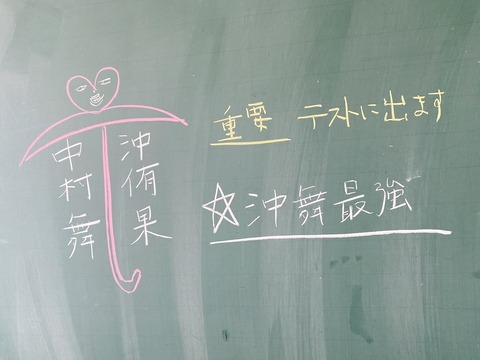 中村舞
沖侑果
重要 テストに出ます
☆沖舞最強